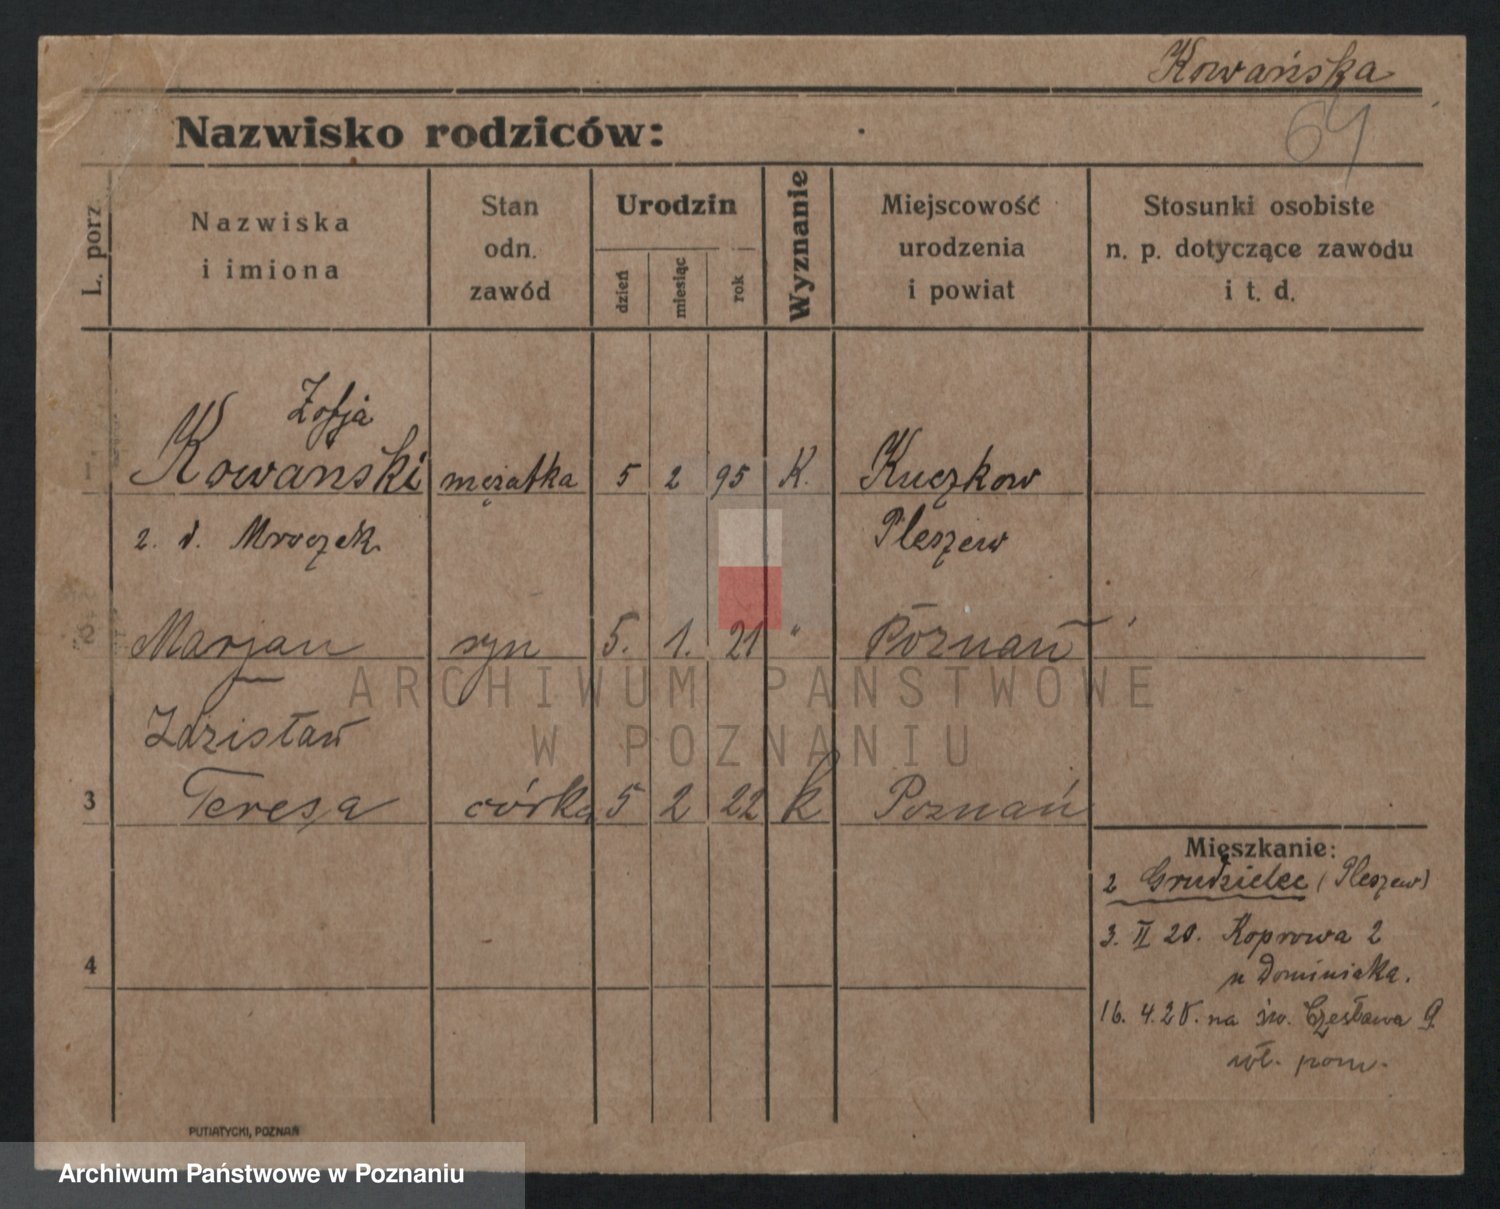 Kowańska
64
Nazwisko rodziców:
L. porz.
Nazwiska
i imiona
Stan
odn.
zawód
Urodzin
dzień
miesiąc
rok
Wyznanie
Miejscowość
urodzenia
i powiat
Stosunki osobiste
n. p. dotyczące zawodu
i t. d.
Zofja
1 Kowański mężatka 5 2 95 K. Kuczkow
z. d. Mroczek Pleszew
2 Marjan syn 5. 1. 21 " Poznań
Zdzisław
3 Teresa córka 5 2 22 k Poznań
4
Mieszkanie:
z Grudzielec (Pleszew)
3. II 20. Koprowa 2
u Dominiaka.
16. 4. 28. na św. Czesława 9
wł. pom.
PUTIATYCKI, POZNAŃ
ARCHIWUM PAŃSTWOWE
W POZNANIU
Archiwum Państwowe w Poznaniu